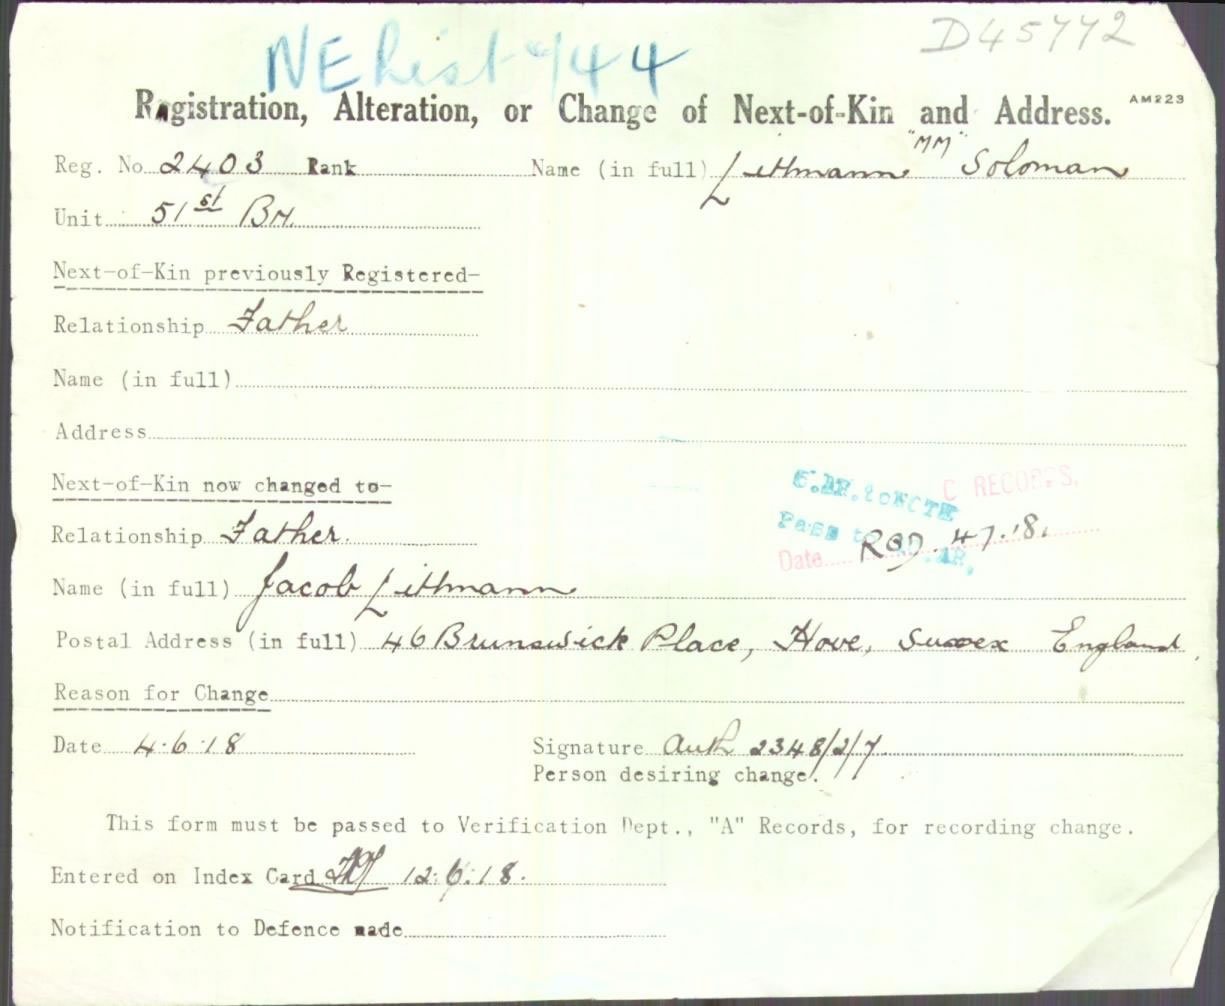 D45772
NE List 9/44
Registration, Alteration, or Change of Next-of-Kin and Address. AM223
Reg. No 2403 Rank Name (in full) Littmann "MM" Soloman
Unit 51st Bn.
Next-of-Kin previously Registered-
Relationship Father
Name (in full)
Address
Next-of-Kin now changed to-
C RECORDS.
Pass to
Relationship Father.
Date 4.7.18.
Name (in full) Jacob Littmann
Postal Address (in full) 46 Brunswick Place, Hove, Sussex England.
Reason for Change
Date 4.6.18 Signature Auth 2348/2/7
Person desiring change.
This form must be passed to Verification Dept., "A" Records, for recording change.
Entered on Index Card 12.6.18.
Notification to Defence made